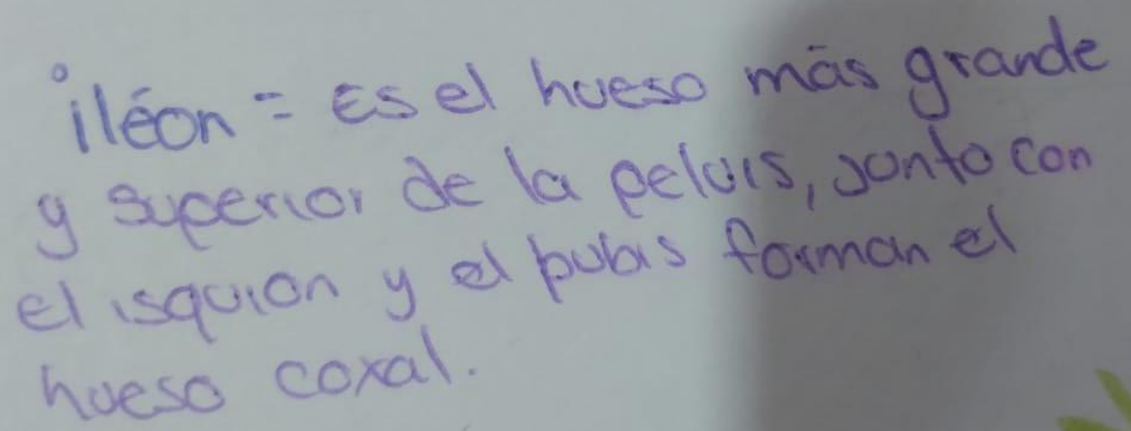 iléon = Es el hueso más grande
y superior de la pelvis, junto con
el isquion y el pubis forman el
hueso coxal.